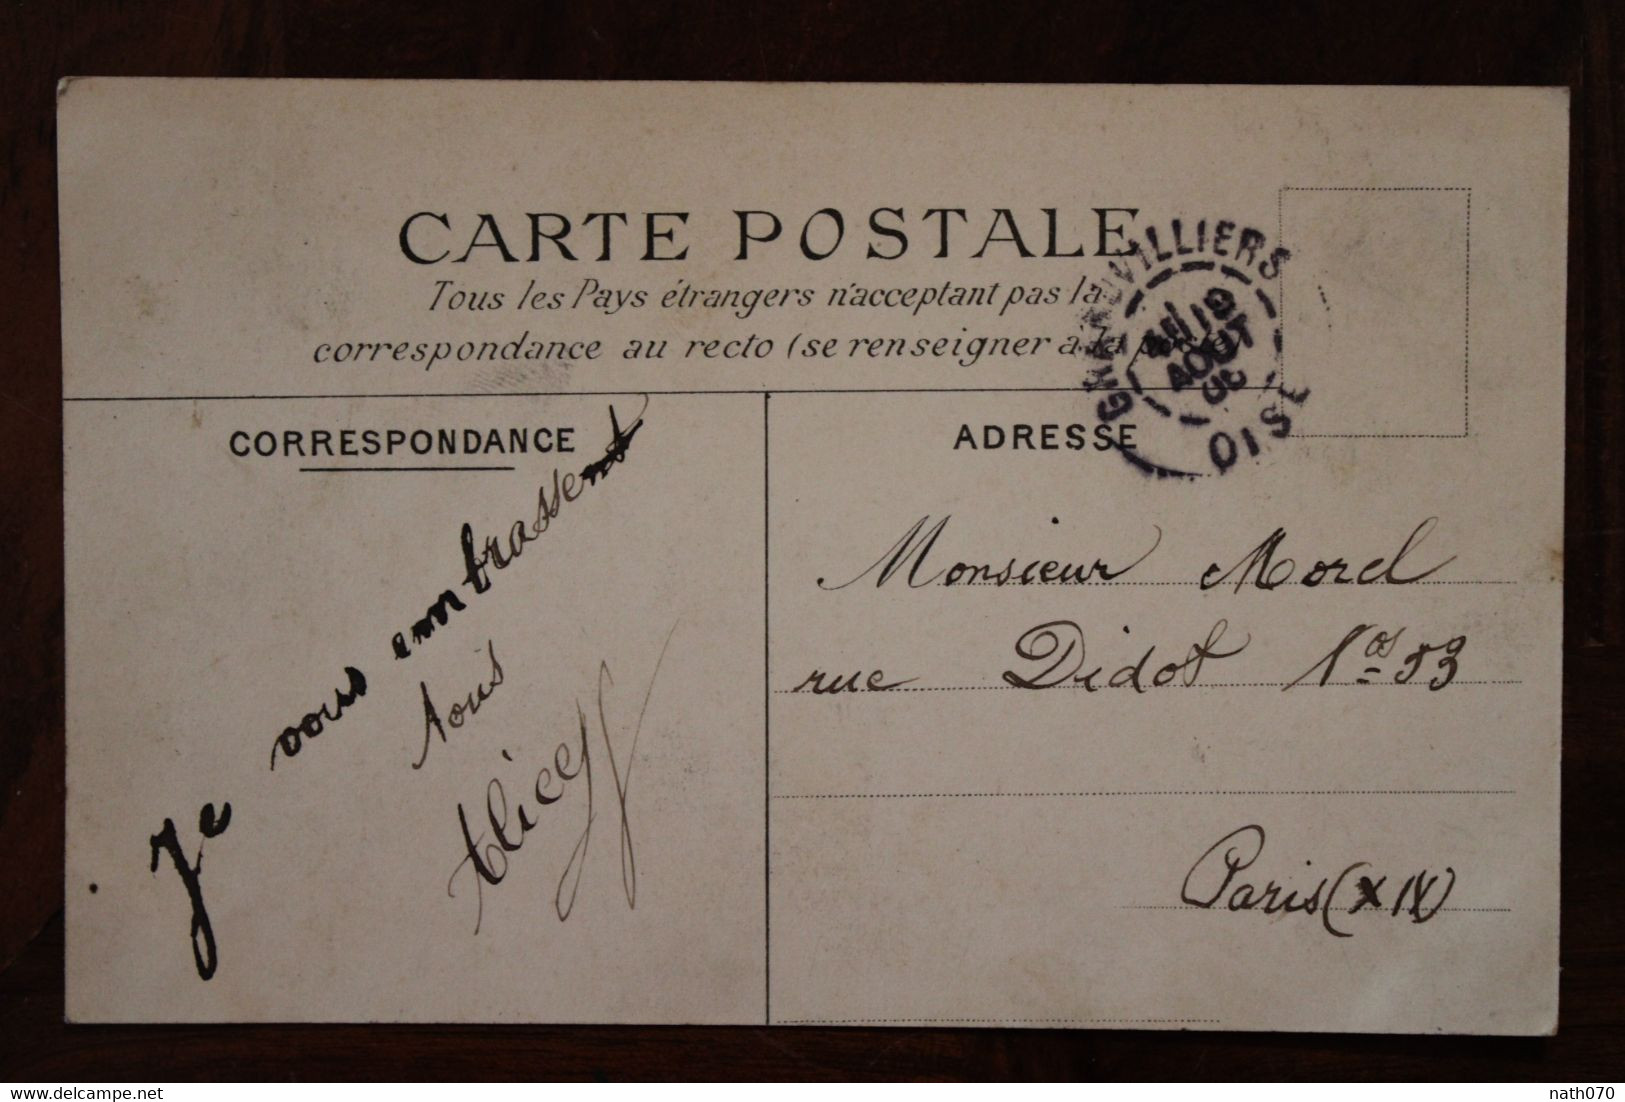 CARTE POSTALE
Tous les Pays étrangers n'acceptant pas la
correspondance au recto (se renseigner à la poste)
GRANDVILLIERS
19
AOUT
OISE
CORRESPONDANCE
ADRESSE
Je vous embrassent
tous
Alice
Monsieur Morel
rue Didot 53
Paris (XIV)
nath070